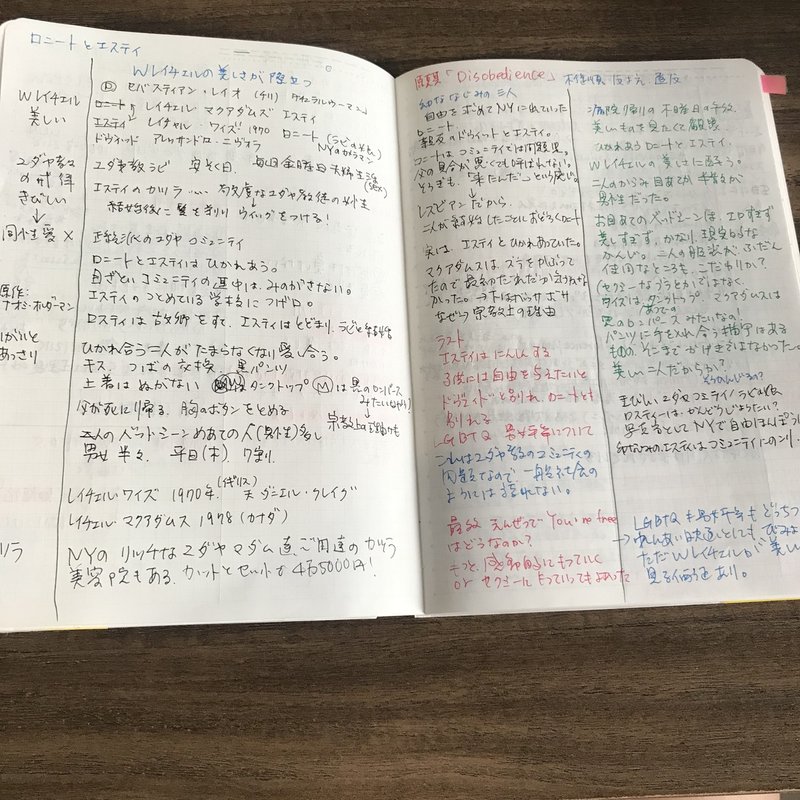 ロニートとエスティ
Wレイチェルの美しさが際立つ
Wレイチェル
美しい
ユダヤ教
の戒律
きびしい
↓
同性愛 ×
原作:
ナオミ・オルダーマン
あっさり
Ⓓ セバスティアン・レイオ (チリ) ナチュラルウーマン」
ロニート レイチェル マクアダムス エスティ
エスティ レイチェル・ワイズ 1970 ロニート (ラビの
NYのカメラマン)
ドヴィッド アレッサンドロ・ニヴォラ
ユダヤ教ラビ 安そく日、毎週金曜日夫婦生活
エスティのカツラ…… なユダヤ教徒の女性
結婚後に髪を剃り ウィッグをつける!
正統派のユダヤ コミュニティ
ロニートとエスティはひかれあう。
目ざといコミュニティの連中は みのがさない。
エスティのつとめている学校に つげ口。
ロスティは故郷をすて、エスティはとどまり、ラビと結婚
ひかれ合う二人がたまらなくなり愛し合う。
キス、つばの交換、黒パンツ
上着はぬがない Ⓦはタンクトップ Ⓜは黒のロンパース
みたい
父が死に帰る。胸のボタンをとめる
→宗教上の理由かも
二人のベットシーンめあての人(男性)多し
男女 半々、平日(木)
レイチェル・ワイズ 1970年、(イギリス) 夫 ダニエル・クレイグ
レイチェル・マクアダムス 1978 (カナダ)
NYの リッチなユダヤマダム達ご用達のカツラ
美容院もある、カットとセットで4万5000円!
原題「Disobedience」 不従順 反抗 違反
幼なじみの三人
自由を求めてNYに出ていった
ロニート
親友のドヴィットとエスティ。
ロニートはコミュニティでは問題児。
父の具合が悪くても呼ばれない。
そうぎも、「来たんだ」という感じ。
↓
レズビアンだから、
二人が結婚したことにおどろくロニート
実は、エスティとひかれあっていた。
マクアダムスは、ズラをかぶって
たので最初だれだか分からな
かった。→下はバッサボサ
なぜ? 宗教上の理由
ラスト
エスティは にんしんする
子供には自由を与えたいと
ドヴィドと別れ、ロニートとも
別れる
LGBTQ 男女平等について
これはユダヤ教のコミュニティの
問題なので 一般社会の
ようには語れない。
最後 えんぜつで You're free
はどうなのか?
もっと、感動的にもっていく
or セクシーにもっていってもよかった
病院帰りの木曜日の午後
美しいものを見たくて鑑賞
ひかれあう ロニートとエスティ。
Wレイチェルの美しさに息をのむ。
二人のからみ目あてか 半数が
男性だった。
お目あてのベッドシーンは、エロすぎず
美しすぎず、かなり、現実的な
かんじ。二人の服装が、ふだん
使用なところも、こだわりか?
(セクシーなブラとかではなく、
ワイズは、タンクトップ、マクアダムスは
黒のロンパースみたいなの!
パンツに手を入れ合う描写はある
ものの、そこまでかげきではなかった。
美しい二人だからか?
きびしいユダヤコミュニティ ラビの娘
ロスティーは、かんどうじょうたい?
写真家としてNYで自由ほんぽう
幼なじみのエスティはコミュニティにのこり、
LGBTQも男女平等も どうちつ
→ れんあい映画としても びみょ
ただ Wレイチェルが美しい
見る価値あり。